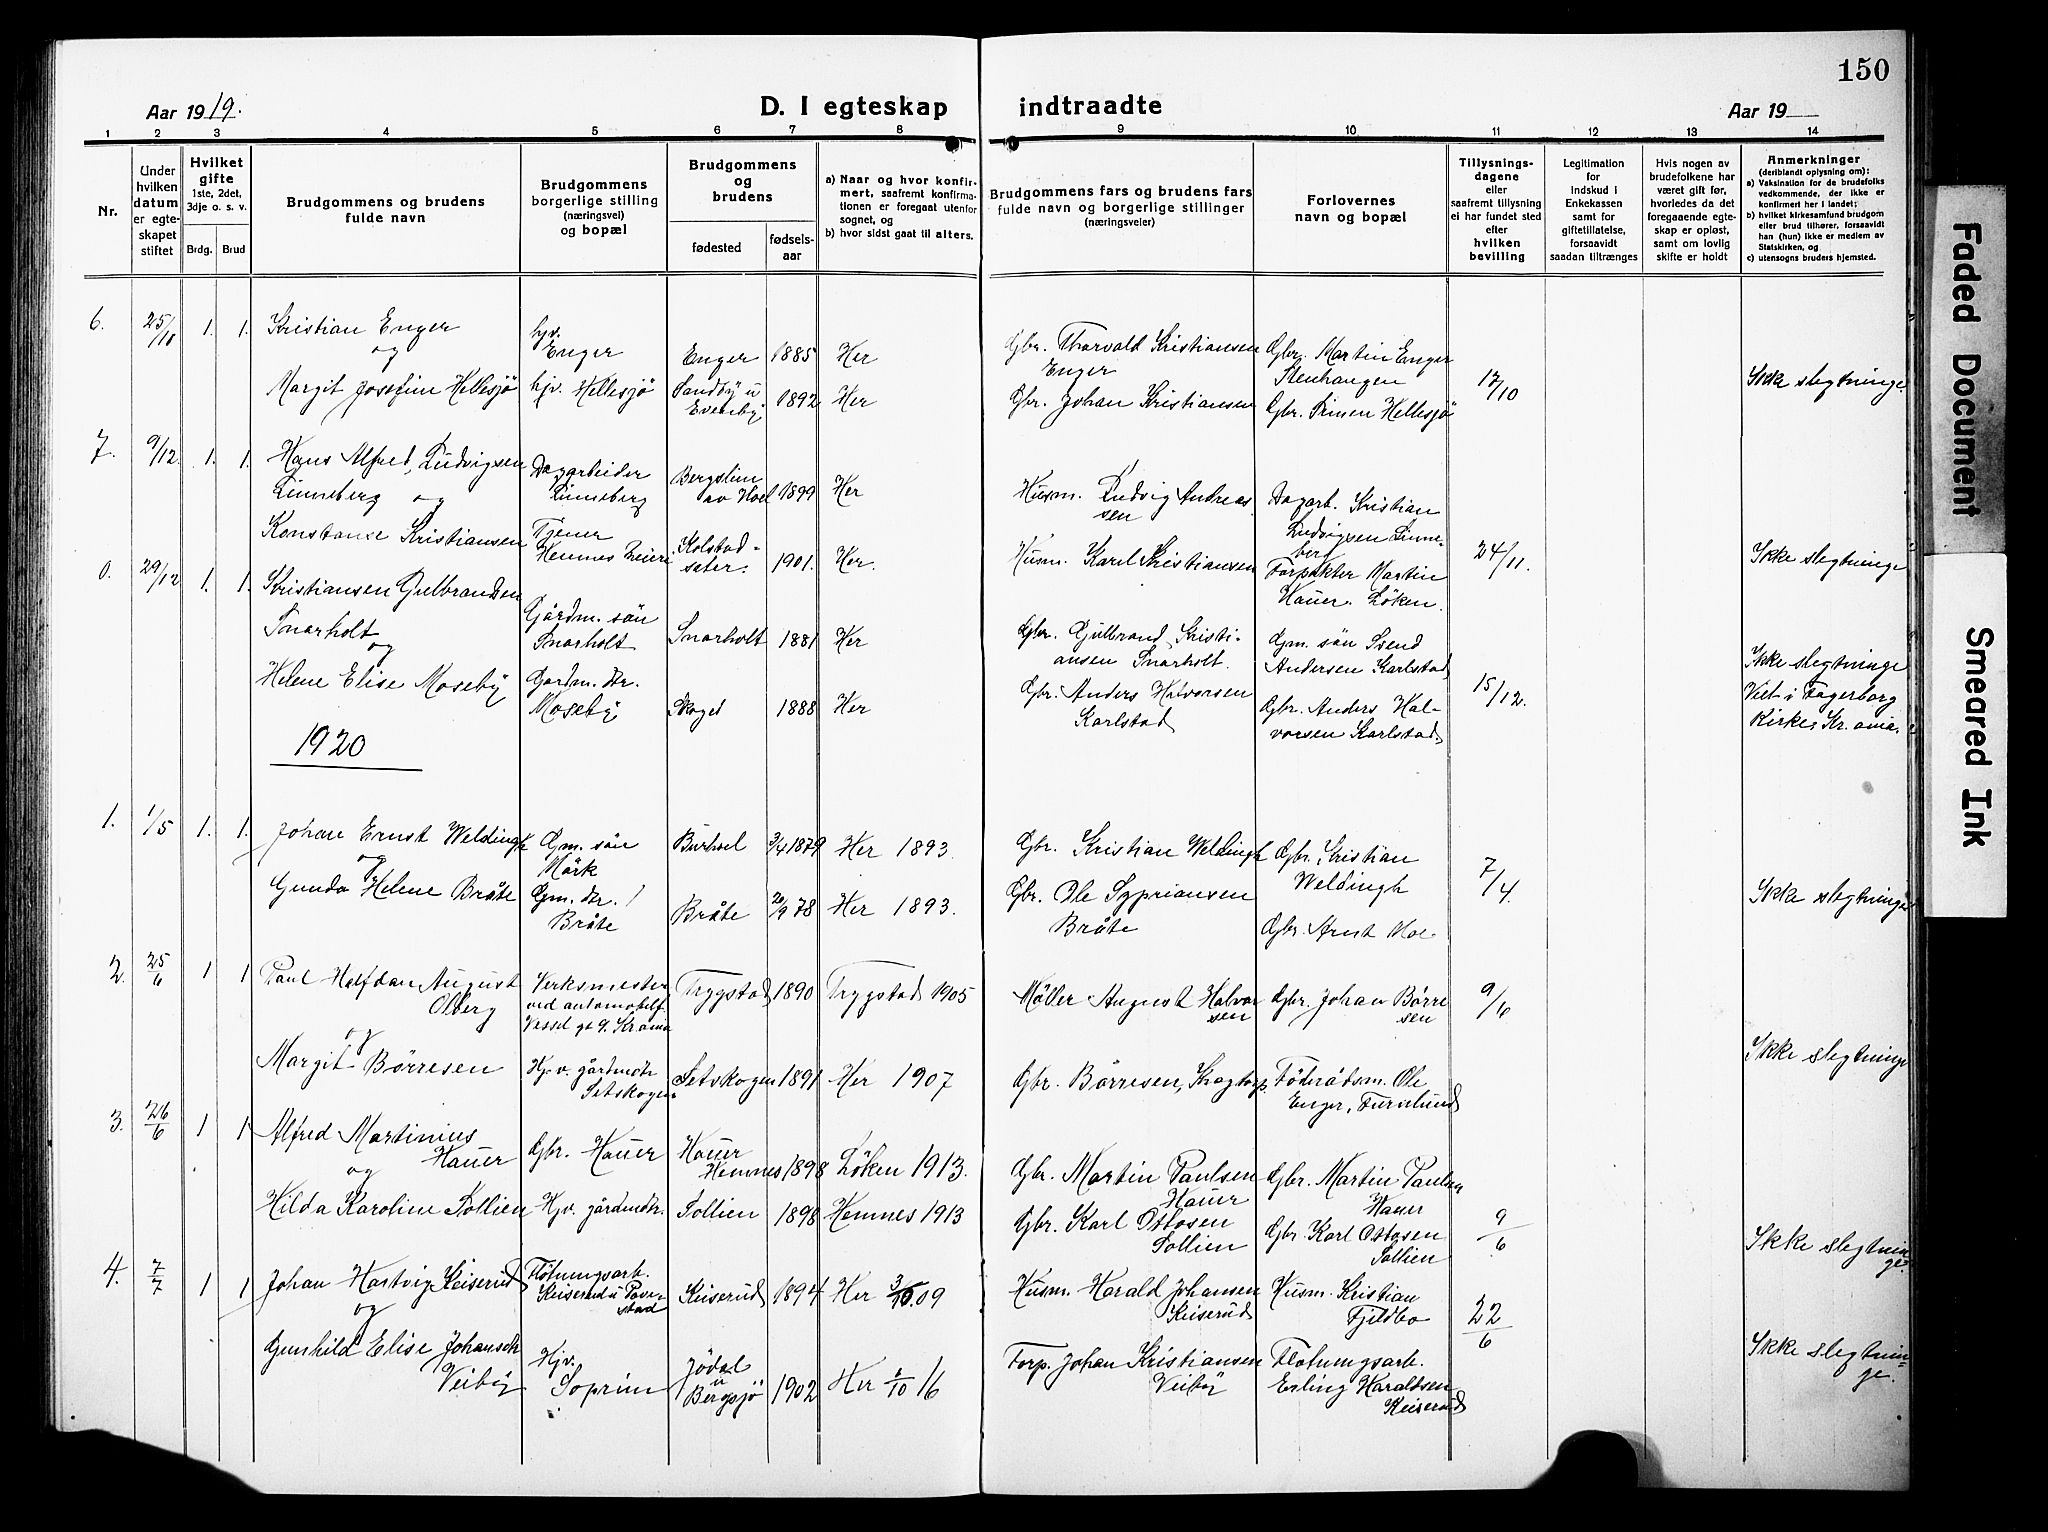 150
Aar 1919.
D. I egteskap indtraadte
Aar 19
1 2 3 4 5 6 7 8 9 10 11 12 13 14
Nr.
Under hvilken datum er egteskapet stiftet
Hvilket gifte
1ste, 2det, 3dje o. s. v.
Brdg. Brud
Brudgommens og brudens fulde navn
Brudgommens borgerlige stilling (næringsvei) og bopæl
Brudgommens og brudens
fødested
fødselsaar
a) Naar og hvor konfirmert, saafremt konfirmationen er foregaat utenfor sognet, og
b) hvor sidst gaat til alters.
Brudgommens fars og brudens fars fulde navn og borgerlige stillinger (næringsveier)
Forlovernes navn og bopæl
Tillysningsdagene eller saafremt tillysning ei har fundet sted efter hvilken bevilling
Legitimation for indskud i Enkekassen samt for giftetillatelse, forsaavidt saadan tiltrænges
Hvis nogen av brudefolkene har været gift før, hvorledes da det foregaaende egteskap er opløst, samt om lovlig skifte er holdt
Anmerkninger
(deriblandt oplysning om):
a) Vaksination for de brudefolks vedkommende, der ikke er konfirmert her i landet;
b) hvilket kirkesamfund brudgom eller brud tilhører, forsaavidt han (hun) ikke er medlem av Statskirken, og
c) utensogns bruders hjemsted.
6. 25/10 1. 1. Kristian Enger
og
Enger Enger 1885 Her
Gbr. Thorvald Kristiansen
Enger
Gbr. Martin Enger
Stenhaugen
Margit Josefine Hellesjø hjv. Hellesjø 1892 Her
Gbr. Johan Kristiansen Gbr. Simen Hellesjø
17/10
Ikke slegtninge
7. 9/12 1. 1. Hans Alfred Ludvigsen
Linneberg og
Dagarbeider
Linneberg
1899 Her
Husm. Ludvig Andreassen
Dagarb. Kristian
Ludvigsen Linneberg
Konstanse Kristiansen
Tjener
Hemnes Meieri
Kolstadsæter. 1901. Her.
Husm. Karel Kristiansen
Forpakter Martin
Hauer. Løken.
24/11.
Ikke slegtninge
29/12 1. 1. Kristiansen Gulbrandsen
Snarholt
og
Gårdm. søn
Snarholt
Snarholt 1881 Her
Gbr. Gulbrand Kristiansen
Snarholt.
Gm. søn Svend
Andersen Karlstad
Helene Elise Moseby
Gårdm. dtr.
Moseby
Skoget 1888 Her
Gbr. Anders Halvorsen
Karlstad
Gbr. Anders Halvorsen
Karlstad
15/12.
Ikke slegtninge
Viet i Fagerborg
Kirke, Kr.ania.
1920
1. 1/5 1. 1. Johan Ernst Weldingh
og
Gm. søn
Mørk
3/4 1879 Her 1893.
Gbr. Kristian Weldingh
Gbr. Kristian
Weldingh
Gunda Helene Bråte
Gm. dtr.
Bråte
Bråte 20/9 78 Her 1893.
Gbr. Ole Sypriansen
Bråte
Gbr. Arnt Moe
7/4
Ikke slegtninge
2. 25/6 1 1 Paul Halfdan August
Olberg
og
Verksmester
ved automobilf.
Trygstad 1890 Trygstad 1905
Møller August Halvorsen
Gbr. Johan Børresen
9/6
Margit Børresen
Hjv. gårdmdtr
Setskogen
Setskogen 1891 Her 1907
Gbr. Børresen, Skogtorp.
Føderådsm. Ole
Enger,
Ikke slegtninge
3. 26/6 1 1 Alfred Martinius
og Hauer
Gbr. Hauer
Hauer
Hemnes 1898 Løken 1913.
Gbr. Martin Paulsen
Hauer
Gbr. Martin Paulsen
Hauer
Hilda Karoline Sollien Hjv. gårdmdtr. Sollien 1898 Hemnes 1913
Gbr. Karl Ottosen
Sollien
Gbr. Karl Ottosen
Sollien
9/6
Ikke slegtninge.
4. 7/7 1 1 Johan Hartvig Keiserud
og
Fløtningsarb.
Keiserud
Keiserud 1894 Her 3/10.09
Husm. Harald Johansen
Keiserud
Husm. Kristian
Fjeldbo
22/6
Gunhild Elise Johansdtr
Veiby
Hjv.
Soprim
Jødal
u
Bergsjø 1902 Her 1/10 16
Torp. Johan Kristiansen
Veiby
Fløtningsarb.
Erling Haraldsen
Keiserud
Ikke slegtninge.
Faded Document
Smeared Ink